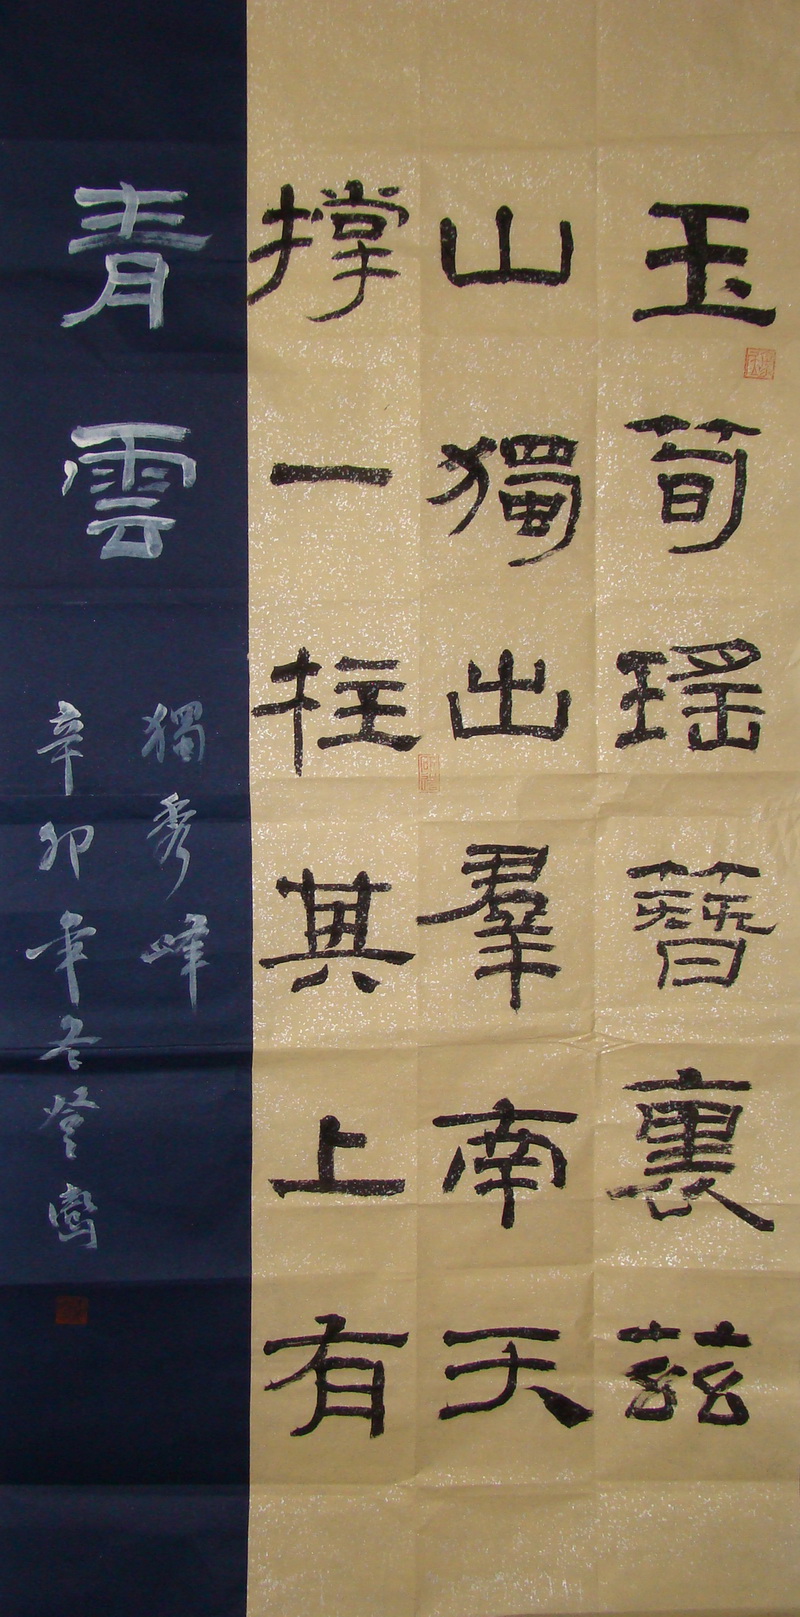 玉荀瑶簪裏兹
山獨出羣南天
撑一柱其上有
青雲
獨秀峰
辛卯年冬登鸾